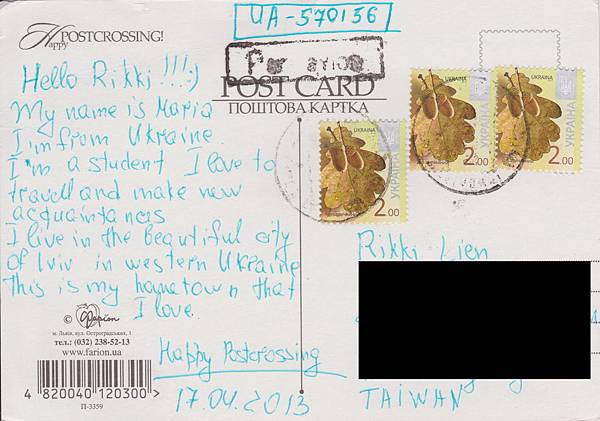 Happy POSTCROSSING!
UA-570156
Par avion
POST CARD
ПОШТОВА КАРТКА
Hello Rikki!!!:)
My name is Maria
I'm from Ukraine.
I'm a student I love to
travell and make new
acquaintances
I live in the beautiful city
of Lviv in western Ukraine
This is my hometown that
I love.
Happy Postcrossing
17.04.2013
UKRAINA
УКРАЇНА
2.00
UKRAINA
УКРАЇНА
2.00
UKRAINA
УКРАЇНА
2.00
Rikki Lien
TAIWAN
© Фarion
м. Львів, вул. Остроградських, 1
тел.: (032) 238-52-13
www.farion.ua
4 820040 120300 >
П-3359